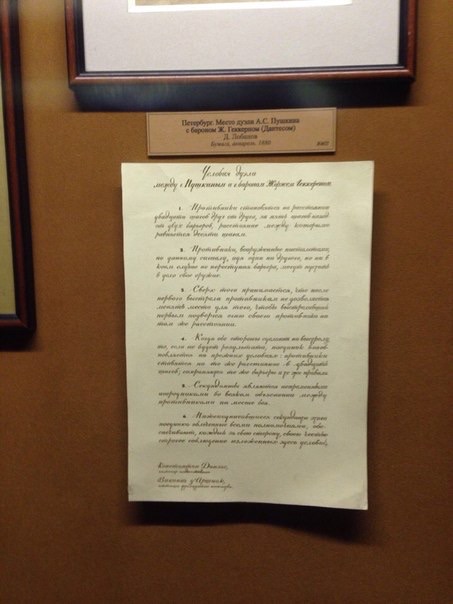 Петербург. Место дуэли А.С. Пушкина
с бароном Ж. Геккерном (Дантесом)
Д. Лобанов
Бумага, акварель. 1880
Условия дуэли
между г. Пушкиным и г. бароном Жоржем Геккереном
1. Противники становятся на расстоянии
двадцати шагов друг от друга, за пять шагов назад
от двух барьеров, расстояние между которыми
равняется десяти шагам.
2. Противники, вооруженные пистолетами,
по данному сигналу, идя один на другого, но ни в
коем случае не переступая барьера, могут пустить
в дело свое оружие.
3. Сверх того принимается, что после
первого выстрела противникам не дозволяется
менять место для того, чтобы выстреливший
первым подвергся огню своего противника на
том же расстоянии.
4. Когда обе стороны сделают по выстрелу,
то, если не будет результата, поединок
на прежних условиях: противники
ставятся на то же расстояние в двадцать
шагов; сохраняются те же барьеры и те же правила.
5. Секунданты являются непременными
посредниками во всяком объяснении между
противниками на месте боя.
6. Нижеподписавшиеся секунданты этого
поединка облеченные всеми полномочиями, обе-
спечивают, каждый за свою сторону, своею честью
строгое соблюдение изложенных здесь условий.
Константин Данзас,
Виконт д'Аршиак,